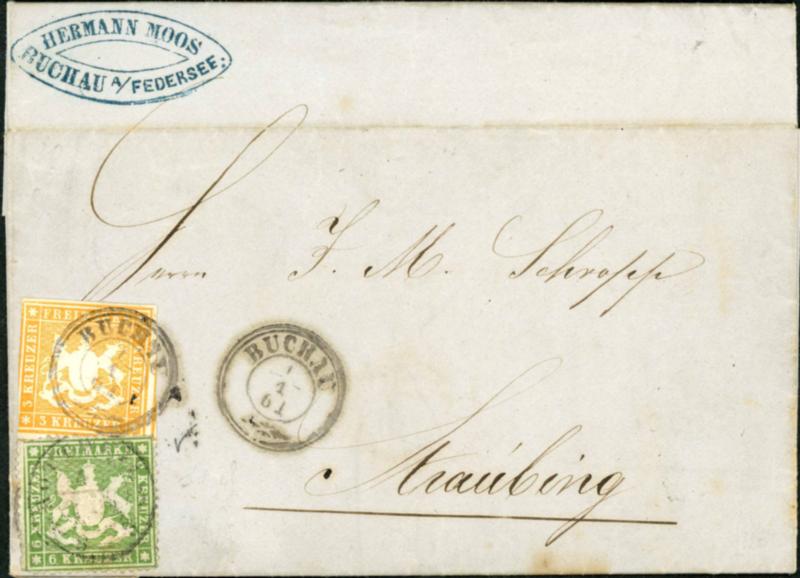 HERMANN MOOS
BUCHAU A/FEDERSEE.
Herrn J. M. Schropp
Straubing
BUCHAU
1
4
61
BUCHAU
FREI
3 KREUZER
3 KREUZER
FREIMARKE
6 KREUZER
6 KREUZER